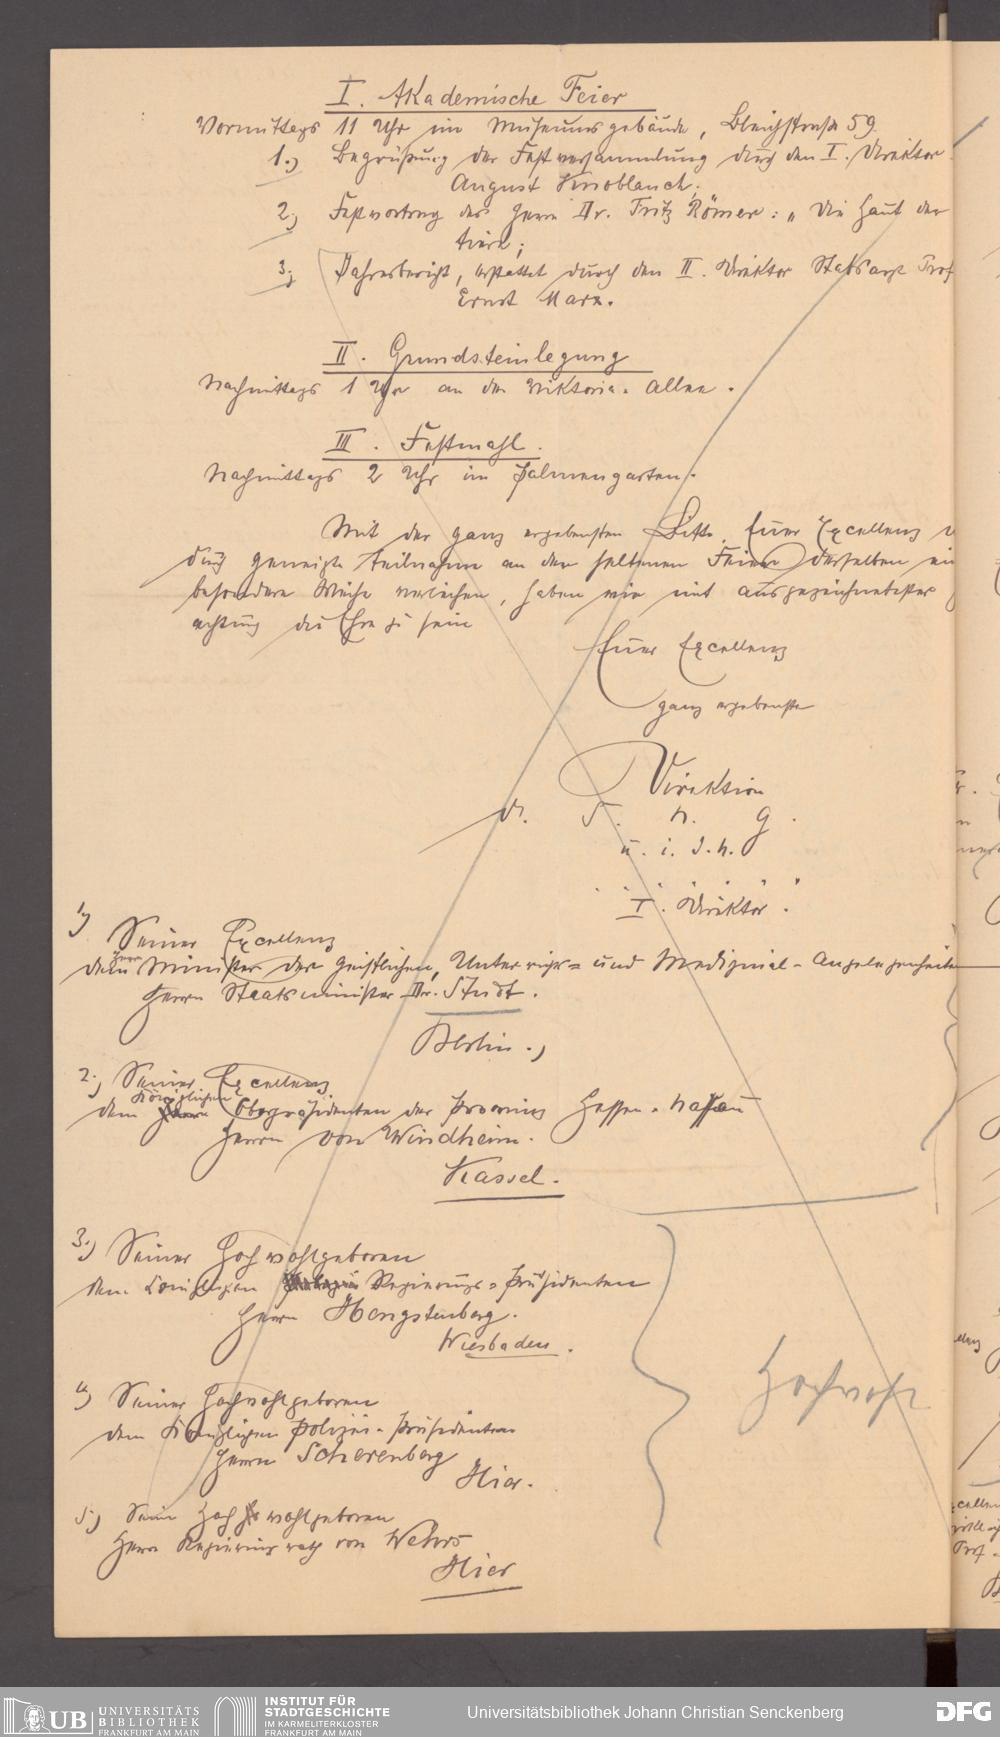 I. Akademische Feier
Vormittags 11 Uhr im Museumsgebäude, Bleichstraße 59.
1.) Begrüßung der Festversammlung durch den I. Direktor
August Knoblauch;
2.) Festvortrag des Herrn Dr. Fritz Römer: „Die Haut der
Tiere;
3.) Jahresbericht, erstattet durch den II. Direktor Stabsarzt Prof
Ernst Marx.
II. Grundsteinlegung
Nachmittags 1 Uhr an der Viktoria-Allee.
III. Festmahl.
Nachmittags 2 Uhr im Palmengarten.
Mit der ganz ergebensten Bitte, Euer Excellenz
durch geneigte Teilnahme an der seltenen Feier derselben ein
besondere Weihe verleihen, haben wir mit ausgezeichnetster
achtung die Ehre zu sein
Euer Excellenz
ganz ergebenste
Direktion
d. S. N. G.
u. i. d. N.
I. Direktor.
1) Seiner Excellenz
dem Herrn Minister der geistlichen, Unterrichts= und Medizinal-Angelegenheiten
Herrn Staatsminister Dr. Studt.
Berlin.,
2.) Seiner Excellenz
dem Königlichen Oberpräsidenten der Provinz Hessen-Nassau
Herrn von Windheim.
Kassel.
3.) Seiner Hochwohlgeboren
dem Königlichen Regierungs-Präsidenten
Herrn Hengstenberg.
Wiesbaden.
4) Seiner Hochwohlgeboren
dem Königlichen Polizei-Präsidenten
Herrn Scherenberg
Hier.
5.) Seiner Hochwohlgeboren
Herrn Regierungsrath von Wehrs
Hier
Hochwohl
UB UNIVERSITÄTS
BIBLIOTHEK
FRANKFURT AM MAIN
INSTITUT FÜR
STADTGESCHICHTE
IM KARMELITERKLOSTER
FRANKFURT AM MAIN
Universitätsbibliothek Johann Christian Senckenberg
DFG